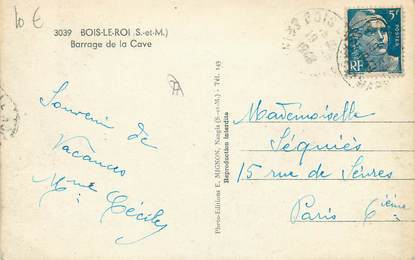 10 €
3039 BOIS-LE-ROI (S.-et-M.)
Barrage de la Cave
5F
RF
POSTES
BOIS
Souvenir de
Vacances
Mme Cécile
Photo-Editions E. MIGNON, Nangis (S.-et-M.) - Tél. 143
Reproduction interdite
Mademoiselle
Séquiès
15 rue de Sèvres
Paris 6ième